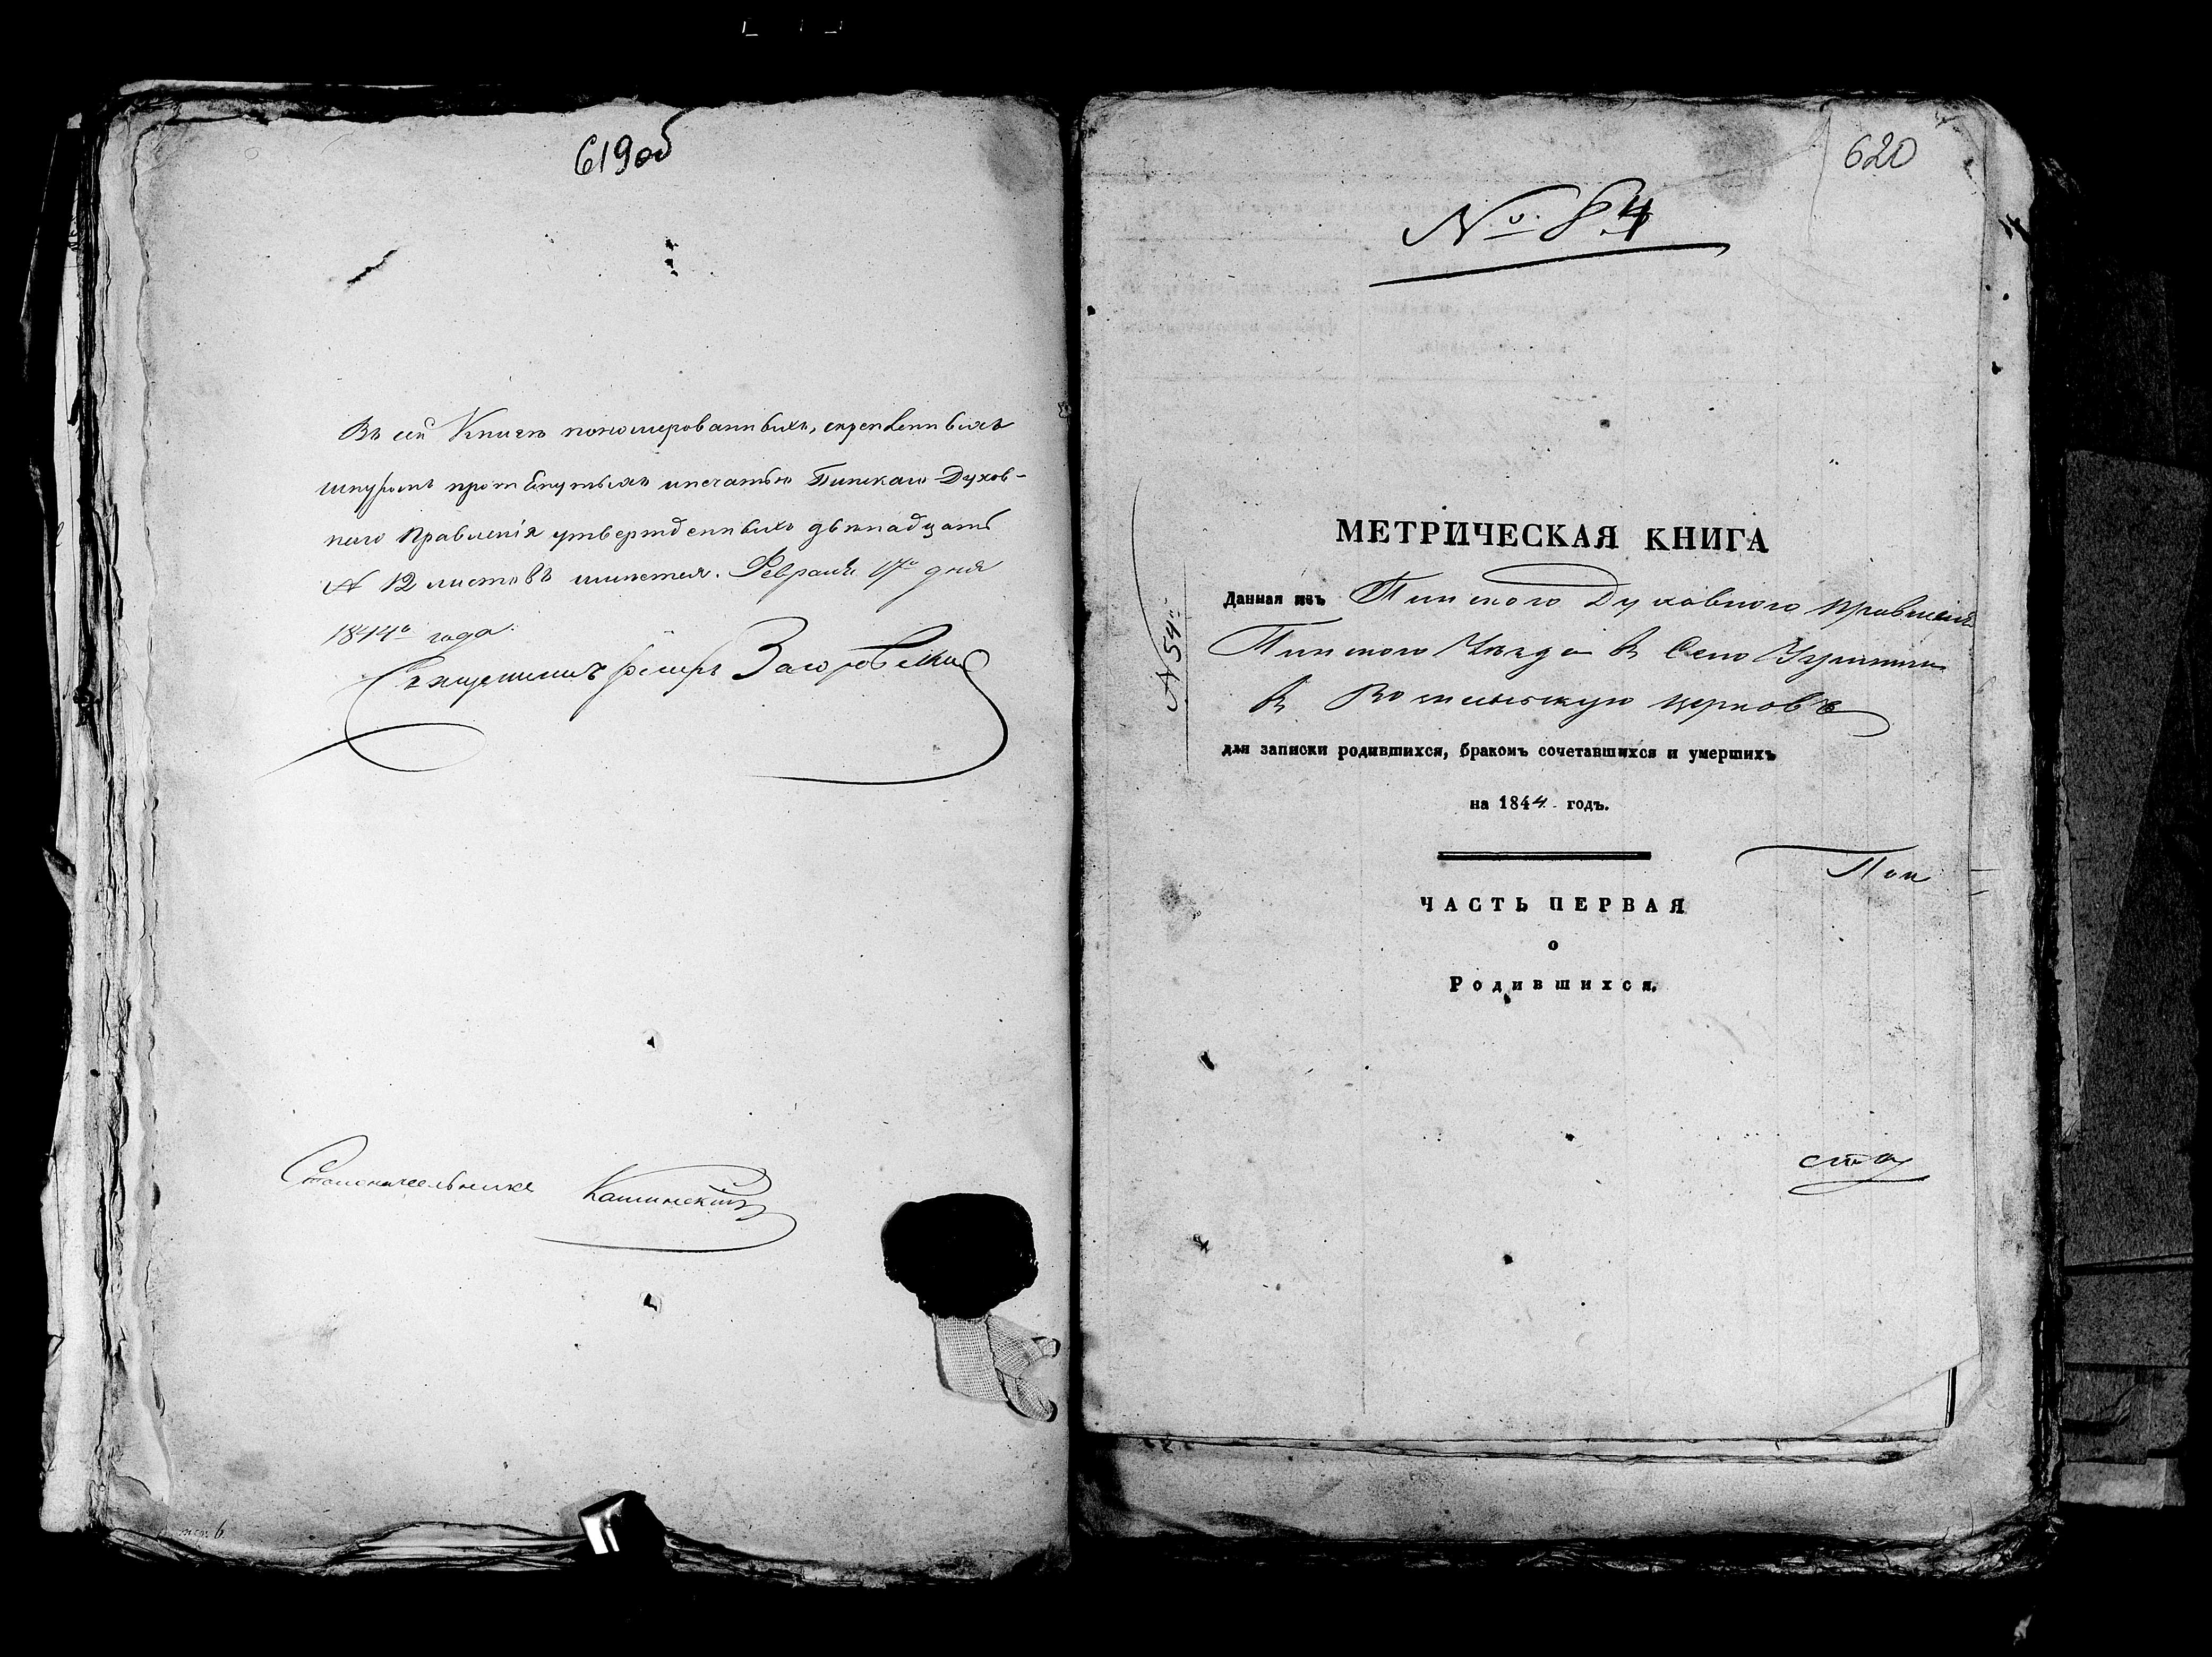 619об
Въ сей Книгѣ пономерованныхъ, скрепленныхъ
шнуромъ печатью Пинскаго Духов-
наго Правленія утвержденныхъ двѣнадцать
№ 12 листовъ имѣется. Февраля 17го дня
1844го года.
Священникъ
Столоначальникъ
620
№ 84
МЕТРИЧЕСКАЯ КНИГА
Данная изъ Пинского Духовного Правленія
Пинского Уѣзда в Село
в церковь
№ 54
для записки родившихся, бракомъ сочетавшихся и умершихъ
на 1844 годъ.
ЧАСТЬ ПЕРВАЯ
о
Родившихся.